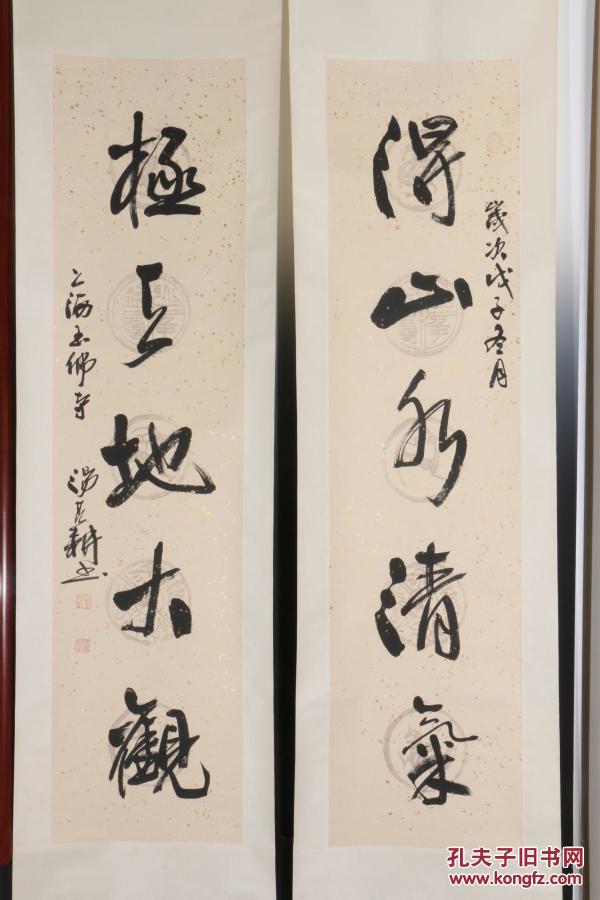 歲次戊子冬月
得山水清氣
極天地大觀
上海玉佛寺
湯其耕書
孔夫子旧书网
www.kongfz.com